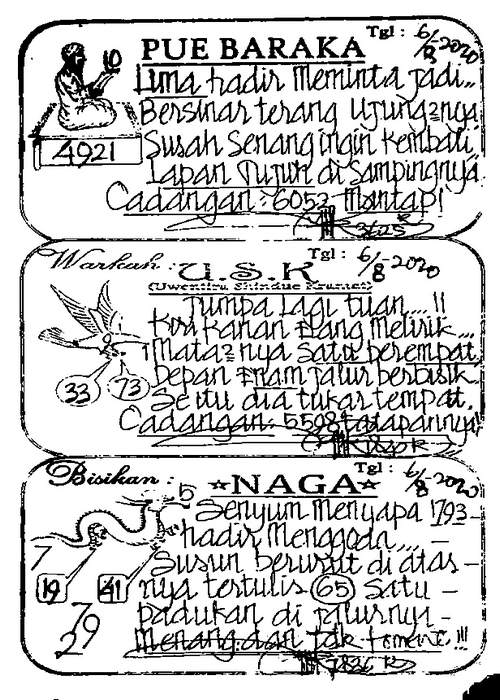 PUE BARAKA
Tgl : 6/8-2020
10
Lima hadir meminta jadi,,
Bersinar terang Ujung2nya
4921
Susah Senang ingin kembali,
Lapan Tujuh di Sampingnya.
Cadangan : 6052 Mantap!
Warkah :
U.S.K
Tgl : 6/8-2020
(Uwentira Shindue Kramat)
Jumpa Lagi tuan....!!
Kiri Kanan Elang Melirik...
Mata2nya Satu berempat.
33 73
Depan Enam jalur berbisik.
Se itu dia tukar tempat.
Cadangan:- 5508
Bisikan :
NAGA
Tgl : 6/8-2020
5
Senyum Menyapa 793-
hadir Menggoda.... -
7
Susun berurut di atas -
19 41
nya tertulis 65 Satu -
79
padukan di jalurnya -
29
Menang dan tak